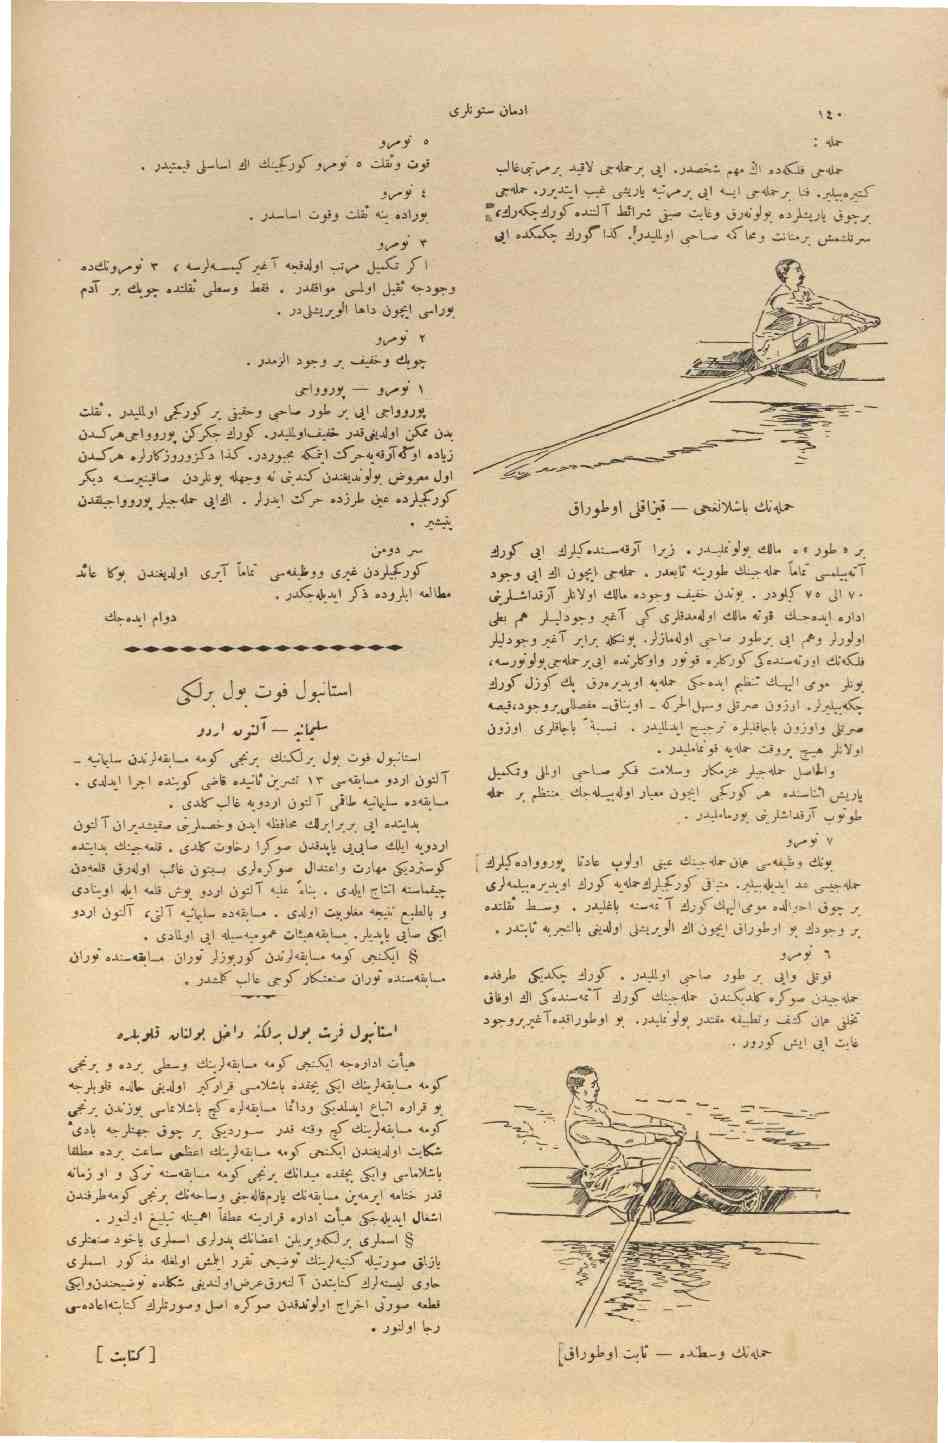 ١٤٠
ادمان ستونلری
حمله :
حمله‌جی فلکه‌ده اڭ مهم شخصدر. ایی برحمله‌جی لاقید برمرتبی‌غالب
کتیره‌بیلیر. فنا برحمله‌جی ایسه ایی برمرتبه یاریشی غیب ایتدیرر. حمله‌جی
برچوق یاریشلرده بولونه‌رق وغایت صیقی شرائط آلتنده کورك‌چکه‌رك،
سرتلشمش برمتانت ومحاکمه صاحبی اولملیدر. کذا کورك چکمکده ایی
حمله‌نك باشلانغجی — قیزاقلی اوطوراق
بر « طور » ه مالك بولونملیدر. زیرا آرقه‌سنده‌کیلرك ایی کورك
آته‌بیلمسی تماماً حمله‌جینك طورینه تابعدر. حمله‌جی ایچون اڭ ایی وجود
٧٠ الی ٧٥ کیلودر. بوندن خفیف وجوده مالك اولانلر آرقداشلرینی
اداره ایده‌جك قوته مالك اوله‌مدقلری کبی آغیر وجودلیلر هم بطی
اولورلر وهم ایی برطور صاحبی اوله‌مازلر. بونکله برابر آغیر وجودلیلر
فلکه‌نك اورته‌سنده‌کی کورکلره قونور واوکلرنده ایی‌برحمله‌جی‌بولونورسه،
بونلر مومی الیهك تنظیم ایده‌جکی حمله‌یه اویدیره‌رق پك کوزل کورك
چکه‌بیلیرلر. اوزون صرتلی وسهل‌الحرکه - اویناق- مفصللی‌بروجود،قیصه
صرتلی واوزون باجاقلیلره ترجیح ایدلملیدر. نسبةً باجاقلری اوزون
اولانلر هیچ بروقت حمله‌یه قونماملیدر.
والحاصل حمله‌جیلر عزمکار وسلامت فکر صاحبی اولملی وتکمیل
یاریش اثناسنده هر کورکجی ایچون معیار اوله‌بیله‌جك منتظم بر حمله
طوتوب آرقداشلرینی یورماملیدر.
٧ نومرو
بونك وظیفه‌سی همان حمله‌جینك عینی اولوب عادتا پوروواده‌کیلرك
حمله‌جیسی عد ایدیله‌بیلیر. متباقی کورکجیلرك‌حمله‌یه کورك اویدیره‌بیلمه‌لری
بر چوق احوالده مومی‌الیهك کورك آتمه‌سنه باغلیدر. وسط ثقلتده
بر وجودك بو اوطوراق ایچون اڭ الویریشلی اولدیغی بالتجربه ثابتدر.
٦ نومرو
قوتلی وایی بر طور صاحبی اولملیدر. کورك چکدیکی طرفده
حمله‌جیدن صوکره کلدیکندن حمله‌جینك کورك آتمه‌سنده‌کی اڭ اوفاق
تخلفی همان کشف وتطبیقه مقتدر بولونملیدر. بو اوطوراقده‌آغیربروجود
غایت ایی ایش کورور.
حمله‌نك وسطنده — ثابت اوطوراق]
٥ نومرو
قوت وثقلت ٥ نومرو کورکجینك اڭ اساسلی قیمتیدر.
٤ نومرو
بوراده ینه ثقلت وقوت اساسدر.
٣ نومرو
اکر تکمیل مرتب اولدقجه آغیر کیمسه‌لرسه ، ٣ نومرونك‌ده
وجودجه ثقیل اولمسی موافقدر. فقط وسطی ثقلتده چویك بر آدم
بوراسی ایچون داها الویریشلی‌در.
٢ نومرو
چویك وخفیف بر وجود الزمدر.
١ نومرو — پورواجی
پورواجی ایی بر طور صاحبی وحقیقی بر کورکجی اولملیدر. ثقلت
بدن ممکن اولدیغی‌قدر خفیف‌اولملیدر. کورك چکرکن پورواجی‌هرکسدن
زیاده اوکه‌آرقه‌یه‌حرکت ایتمکه مجبوردر. کذا دکزوروزکارلره هرکسدن
اول معروض بولوندیغندن کندینی نه وجهله بونلردن صاقینیرسه دیکر
کورکجیلرده عین طرزده حرکت ایدرلر. اڭ‌ایی حمله‌جیلر پورواجیلقدن
یتیشیر.
سر دومن
کورکجیلردن غیری ووظیفه‌سی تماماً آیری اولدیغندن بوکا عائد
مطالعه ایلروده ذکر ایدیله‌جکدر.
دوام ایده‌جك
استانبول فوت بول برلکی
سلیمانیه — آلتون اردو
استانبول فوت بول برلکنك برنجی کومه مسابقه‌لرندن سلیمانیه -
آلتون اردو مسابقه‌سی ١٣ تشرین ثانیده قاضی کوینده اجرا ایدلدی.
مسابقه‌ده سلیمانیه طاقمی آلتون اردویه غالب کلدی.
بدایتده ایی بربرابرلك محافظه ایدن وخصملرینی صیقیشدیران آلتون
اردویه ایلك صایی‌یی یاپدقدن صوکرا رخاوت کلدی. قلعه‌جینك بدایتده
کوستردیکی مهارت واعتدال صوکره‌لری بسبتون غائب اوله‌رق قلعه‌دن
چیقماسنه انتاج ایلدی. بناءً علیه آلتون اردو بوش قلعه ایله اوینادی
و بالطبع نتیجه مغلوبیت اولدی. مسابقه‌ده سلیمانیه آلتی، آلتون اردو
ایکی صایی یاپدیلر. مسابقه‌هیئات عمومیه‌سیله ایی اولمادی.
§ ایکنجی کومه مسابقه‌لرندن کوربوزلر توران مسابقه‌سنده توران
مسابقه‌سنده توران صنعتکار کوجی غالب کلمشدر.
استانبول فوت بول برلکنه داخل بولنان قلوبلره
هیأت اداره‌جه ایکنجی کومه مسابقه‌لرینك وسطی برده و برنجی
کومه مسابقه‌لرینك ایکی بچقده باشلامسی قرارکیر اولدیغی حالده قلوبلرجه
بو قراره اتباع ایدلمدیکی ودائما مسابقه‌لره کچ باشلاتماسی یوزندن برنجی
کومه مسابقه‌لرینك کچ وقته قدر سوردیکی بر چوق جهتلرجه بادیٔ
شکایت اولدیغندن ایکنجی کومه مسابقه‌لرینك اعظمی ساعت برده مطلقا
باشلاماسی وایکی بچقده میدانك برنجی کومه مسابقه‌سنه ترکی و او زمانه
قدر ختامه ایرمه‌ین مسابقه‌نك یارم‌قاله‌جغی وساحه‌نك برنجی کومه‌طرفندن
اشغال ایدیله‌جکی هیأت اداره قرارینه عطفاً اهمیتله تبلیغ اولنور.
§ اسملری برلکه‌ویریلن اعضانك پدرلری اسملری یاخود صنعتلری
یازیلق صورتیله کنیه‌لرینك توضیحی تقرر ایتمش اولمغله مذکور اسملری
حاوی لیسته‌لرك کتابتدن آلنه‌رق‌عرض‌اولندیغی شکلده توضیحندن‌وایکی
قطعه صورتی اخراج اولوندقدن صوکره اصل وصورتلرك کتابته‌اعاده‌سی
رجا اولنور.
[ کتابت ]